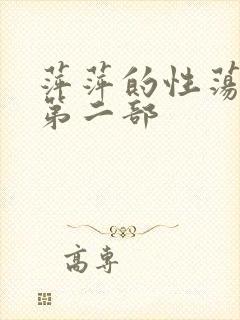 萍萍的性荡
第二部
高专